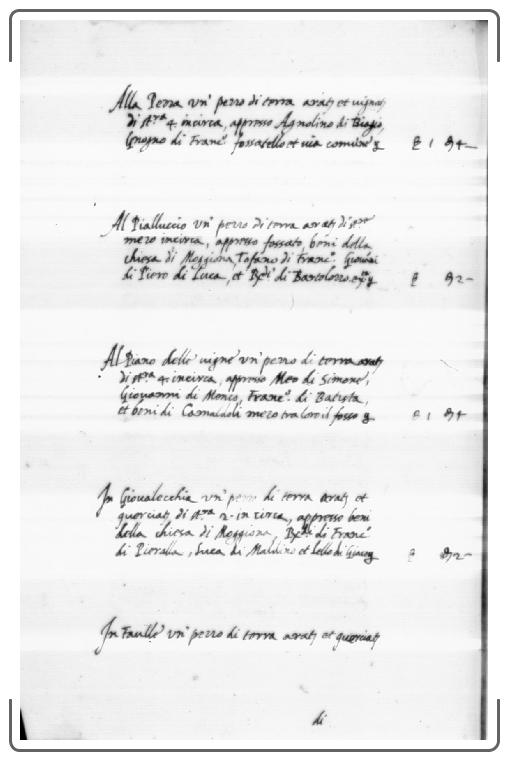 Alla Pezza un' pezzo di terra arat. et vignat.
di st.ra 4 incirca, appresso Agnolino di Biagio,
Grogno di Franc.o fossatello et via comune
Al Pialluccio un' pezzo di terra arat. di st.ro
mezo incirca, appresso fossato, beni della
chiesa di Moggiona, Tofano di Franc.o Giovani
di Piero di Luca, et Bart.o di Bartolozzo
Al Piano delle vigne un' pezzo di terra arat.
di st.ra 4 incirca, appresso Meo di Simone,
Giovanni di Monco, Franc.o di Batista,
et beni di Camaldoli mezo tra loro il fosso
In Giovalecchia un' pezzo di terra arat. et
querciat. di st.ra 2 - in circa, appresso beni
della chiesa di Moggiona, di Franc.o
di Pieralla, Luca di Maldino et Lello di
In Faulle un' pezzo di terra arat. et querciat.
di